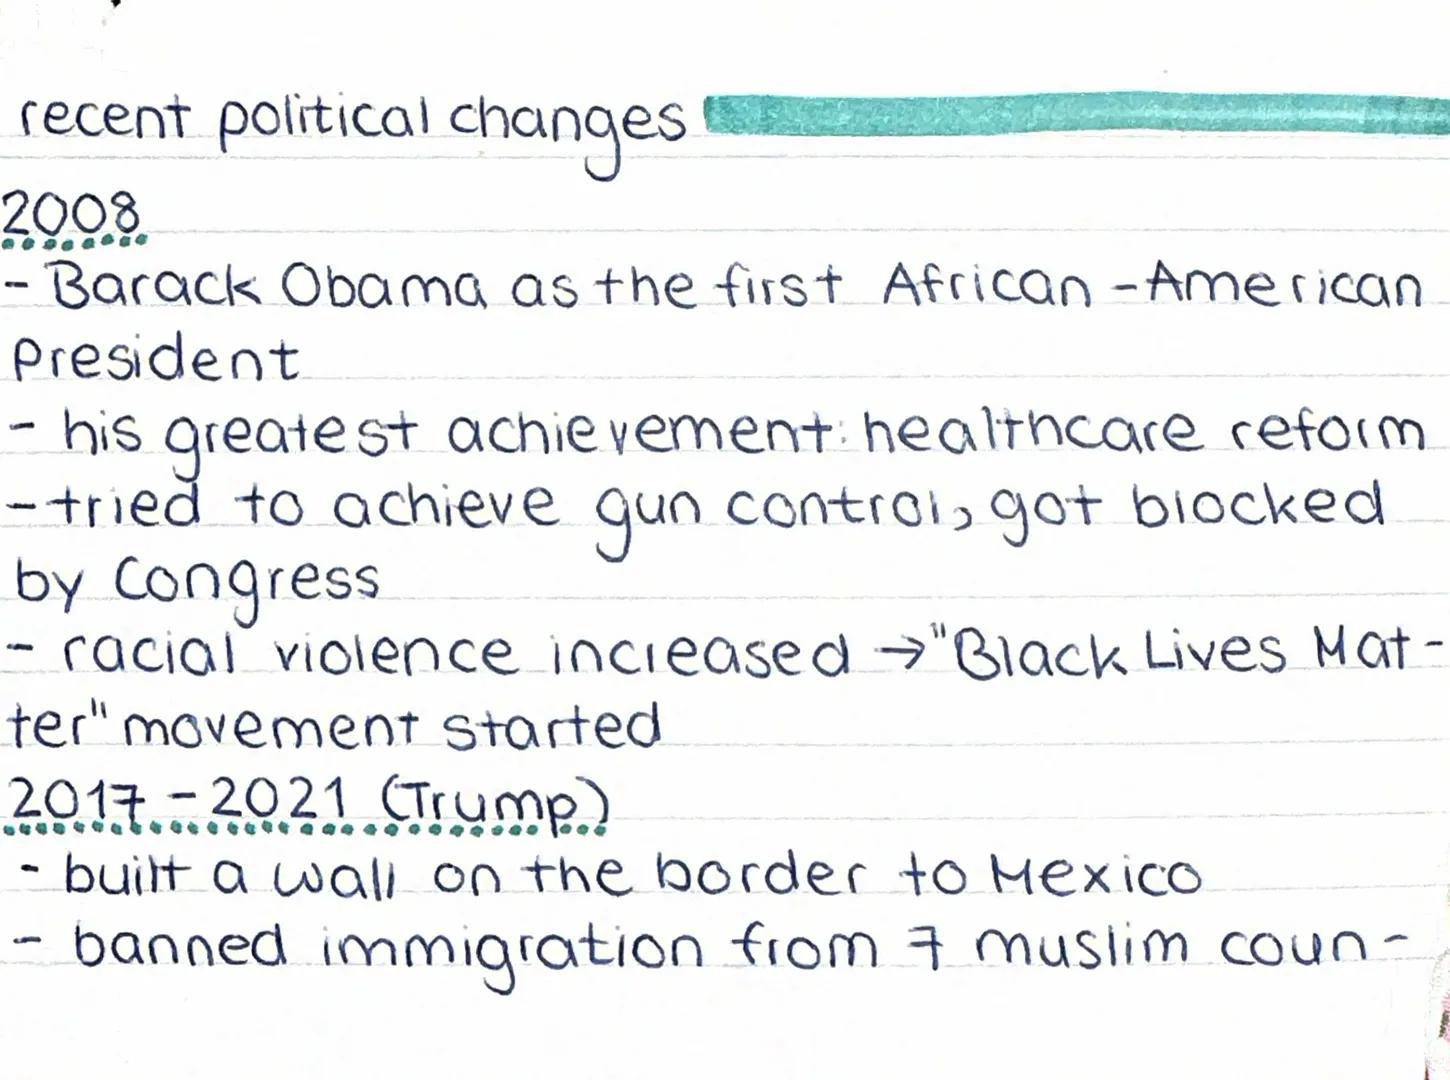 recent political changes
2008
- Barack Obama as the first African-American
President
- his greatest achievement: healthcare reform
- tried to achieve gun control, got blocked
by Congress
- racial violence increased → "Black Lives Mat-
ter" movement started
2017-2021 (Trump)
- built a wall on the border to Mexico
- banned immigration from 7 muslim coun-